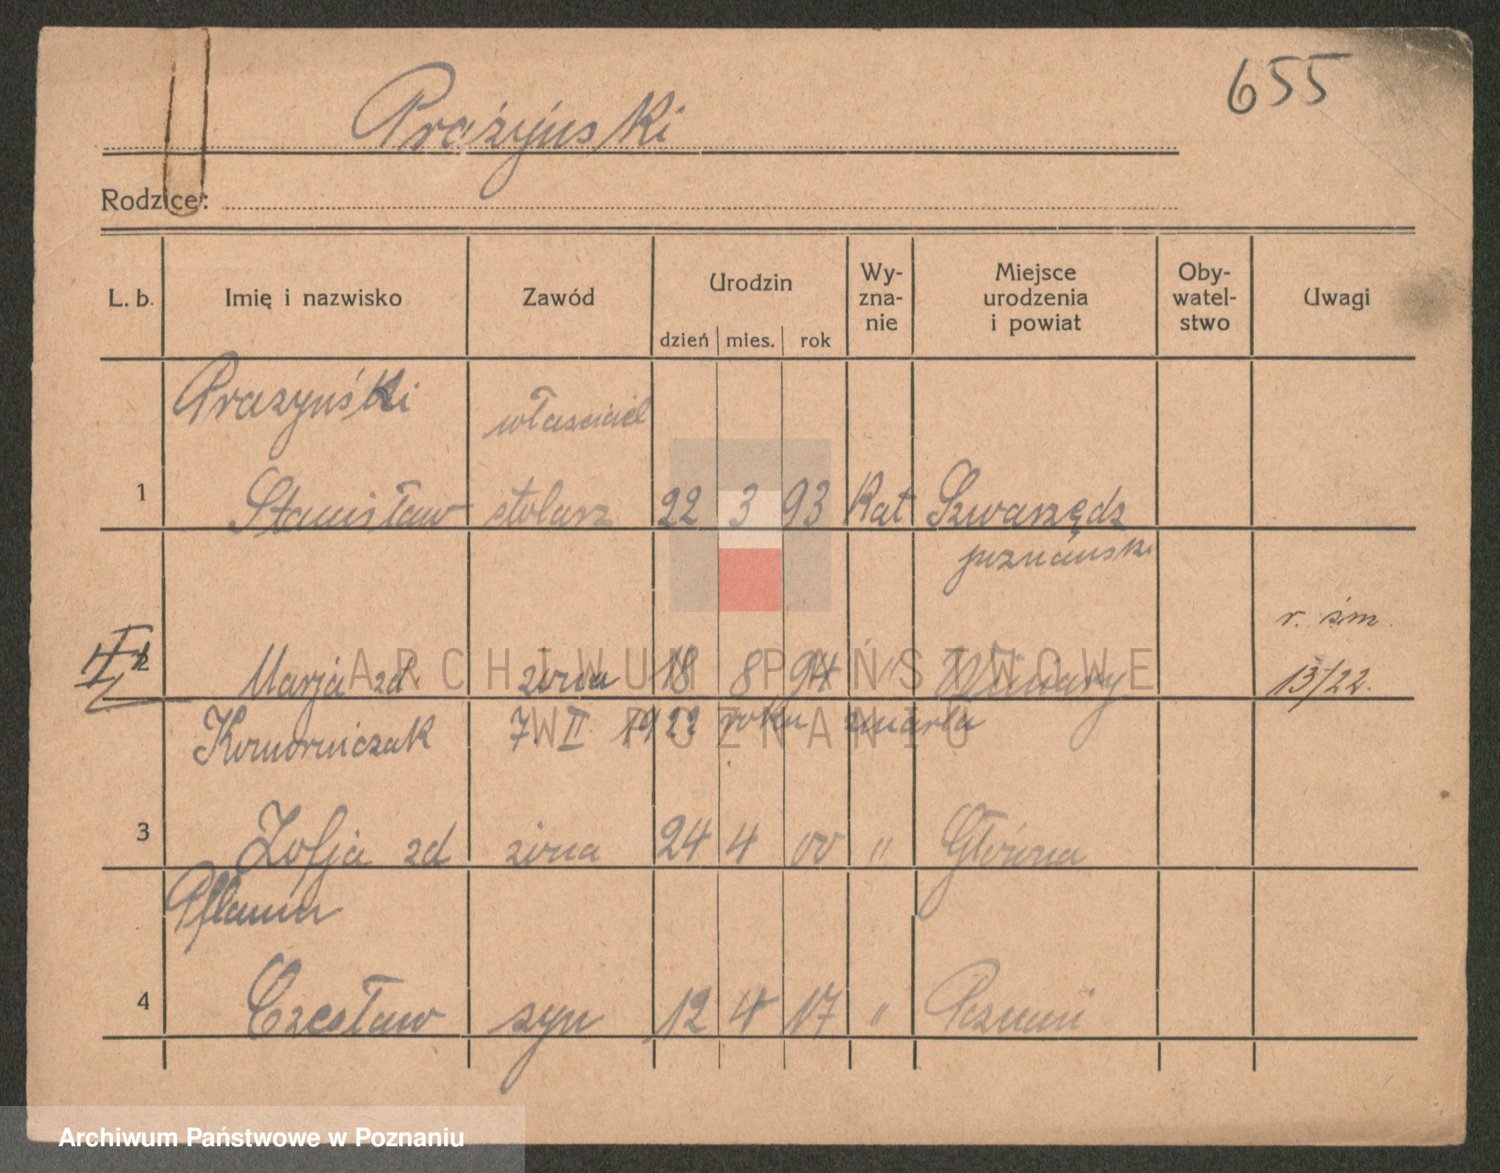 655
Prażyński
Rodzice:
L. b. Imię i nazwisko Zawód Urodzin dzień mies. rok Wy-zna-nie Miejsce urodzenia i powiat Oby-watel-stwo Uwagi
Prazyński właściciel
1 Stanisław stolarz 22 3 93 Kat Szwarzędz
poznański
r. śm.
2 Marja zd. żona 18 8 94 " Winiary 13/22.
Komorniczak 7. II. 1922 roku zmarła
3 Zofja zd żona 24 4 00 " Główna
Pflaum
4 Czesław syn 12 4 17 " Poznań
ARCHIWUM PAŃSTWOWE
W POZNANIU
Archiwum Państwowe w Poznaniu